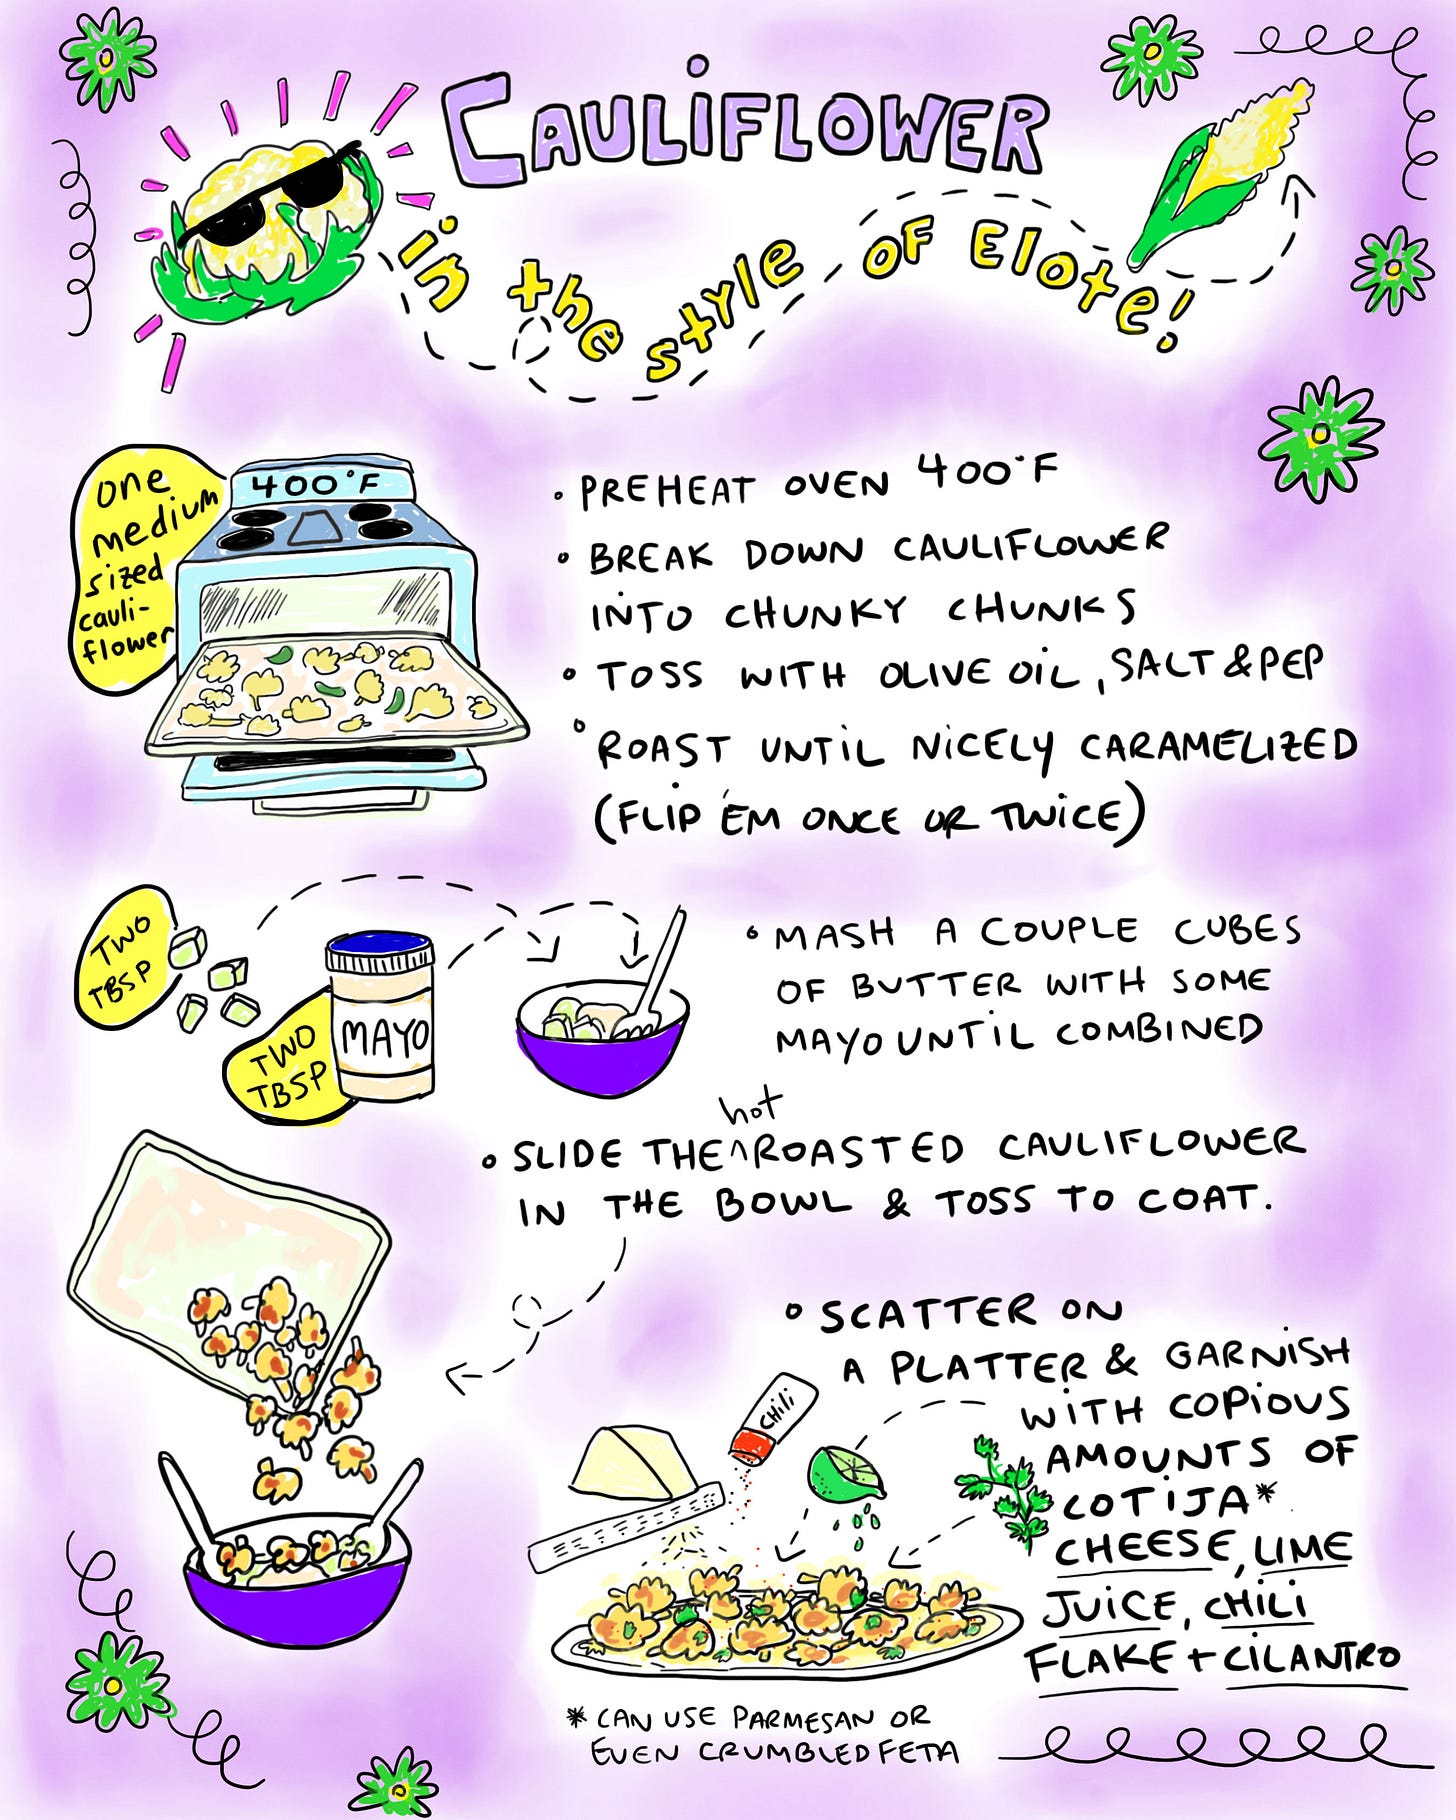 CAULIFLOWER
in the style OF Elote!
one
medium
sized
cauli-
flower
400°F
• PREHEAT OVEN 400°F
• BREAK DOWN CAULIFLOWER
INTO CHUNKY CHUNKS
• TOSS WITH OLIVE OIL, SALT & PEP
• ROAST UNTIL NICELY CARAMELIZED
(FLIP 'EM ONCE OR TWICE)
TWO
TBSP
TWO
TBSP
MAYO
• MASH A COUPLE CUBES
OF BUTTER WITH SOME
MAYO UNTIL COMBINED
hot
• SLIDE THE ^ ROASTED CAULIFLOWER
IN THE BOWL & TOSS TO COAT.
• SCATTER ON
A PLATTER & GARNISH
WITH COPIOUS
AMOUNTS OF
COTIJA*
CHEESE, LIME
JUICE, CHILI
FLAKE + CILANTRO
CHili
* CAN USE PARMESAN OR
EVEN CRUMBLED FETA